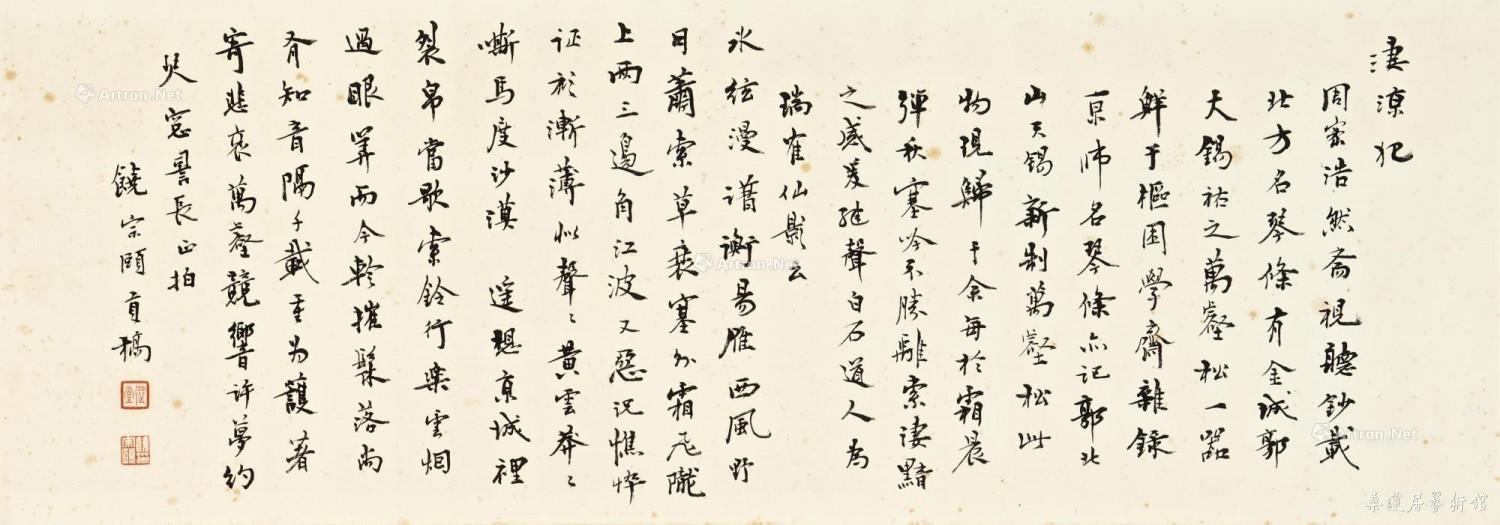 淒涼犯
周密浩然齋視聽鈔載
北方名琴條有金城郭
天錫祐之萬壑松一器
鮮于樞困學齋雜錄
京師名琴條亦記郭北
山天錫新制萬壑松此
物現歸于余每於霜晨
彈秋塞吟不勝離索淒黯
之感爰繼聲白石道人為
瑞雀仙影云
冰絃漫譜衡昜雁西風野
日蕭索草衰塞外霜飛隴
上兩三邊角江波又惡況憔悴
征衫漸薄似聲〻黃雲莽〻
嘶馬度沙漠 遙想京城裡
裂帛當歌索鈴行樂雲烟
過眼算而今軫摧髹落尚
有知音隔千載重為護著
寄悲哀萬壑競響許夢約
窓詈長正拍
饒宗頤貢稿
Artron.Net
Artron.Net
Artron.Net
Artron.Net